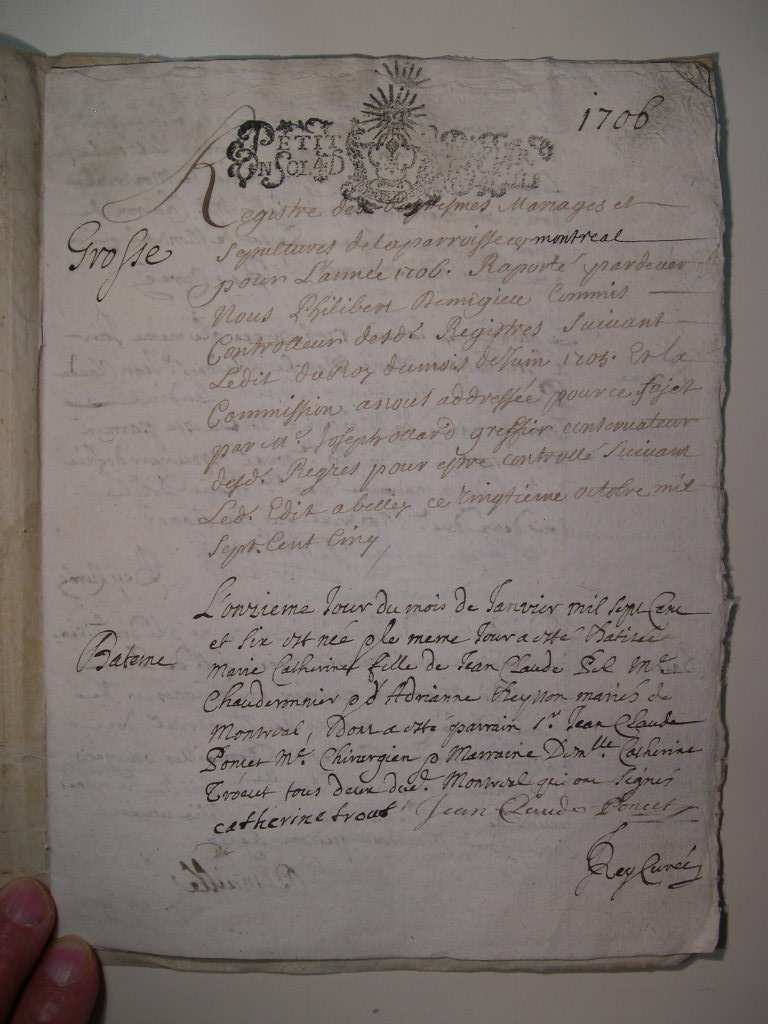 1706
PETIT
EN SOL 4 D
Grosse
Registre des Baptesmes Mariages et
Sepultures de la parroisse de montreal
pour L'année 1706. Raporté pardever
Nous Philibert Demigieu Commis
Controlleur desd. Registres Suivant
L'edit du Roy du mois de Juin 1705. Et la
Commission a nous addressée pour ce sujet
par Mr. Joseph ollard greffier conservateur
desd. Regres pour estre controllé Suivant
Led. Edit a belley ce vingtieme octobre mil
Sept. Cent Cinq
Bateme
L'onzieme Jour du mois de Janvier mil sept Cent
et six est née & le meme Jour a esté Batisée
Marie Catherine fille de Jean Claude Pel Me.
Chauderonnier & d'Adrianne Reynon mariés de
Montreal, Dont a esté parrain Sr. Jean Claude
Poncet Me. Chirurgien & Marraine Dimlle. Catherine
Trocut tous deux dud. Montreal qui ont signés
catherine trout Jean Claude Poncet
Rey Curé